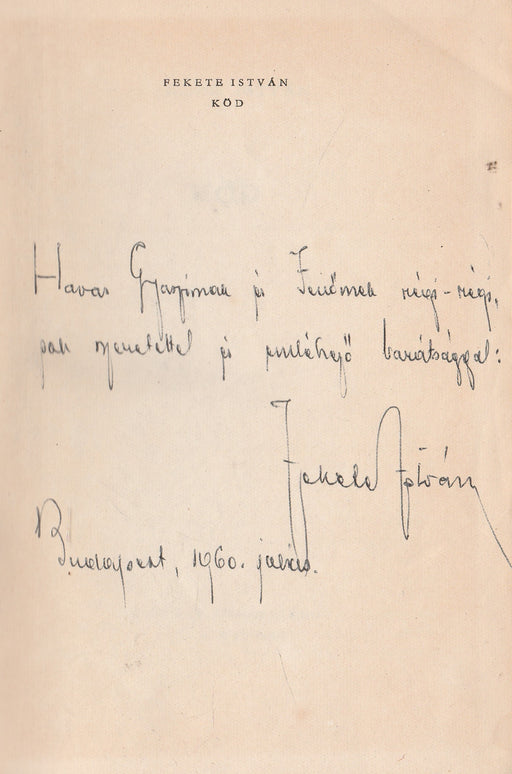 FEKETE ISTVÁN
KÖD
Havas és régi-régi,
sok szeretettel és emlékező barátsággal:
Fekete István
Budapest, 1960. július.